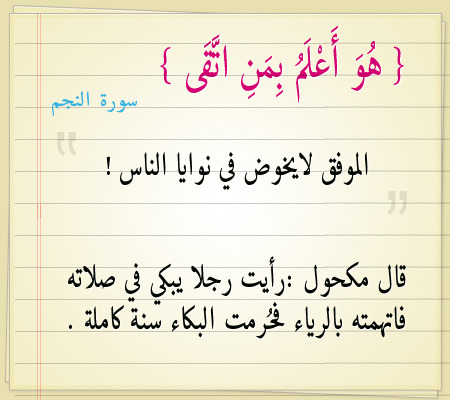 { هُوَ أَعْلَمُ بِمَنِ اتَّقَى }
سورة النجم
"
الموفق لايخوض في نوايا الناس !
"
قال مكحول :رأيت رجلا يبكي في صلاته
فاتهمته بالرياء فحُرمت البكاء سنة كاملة .